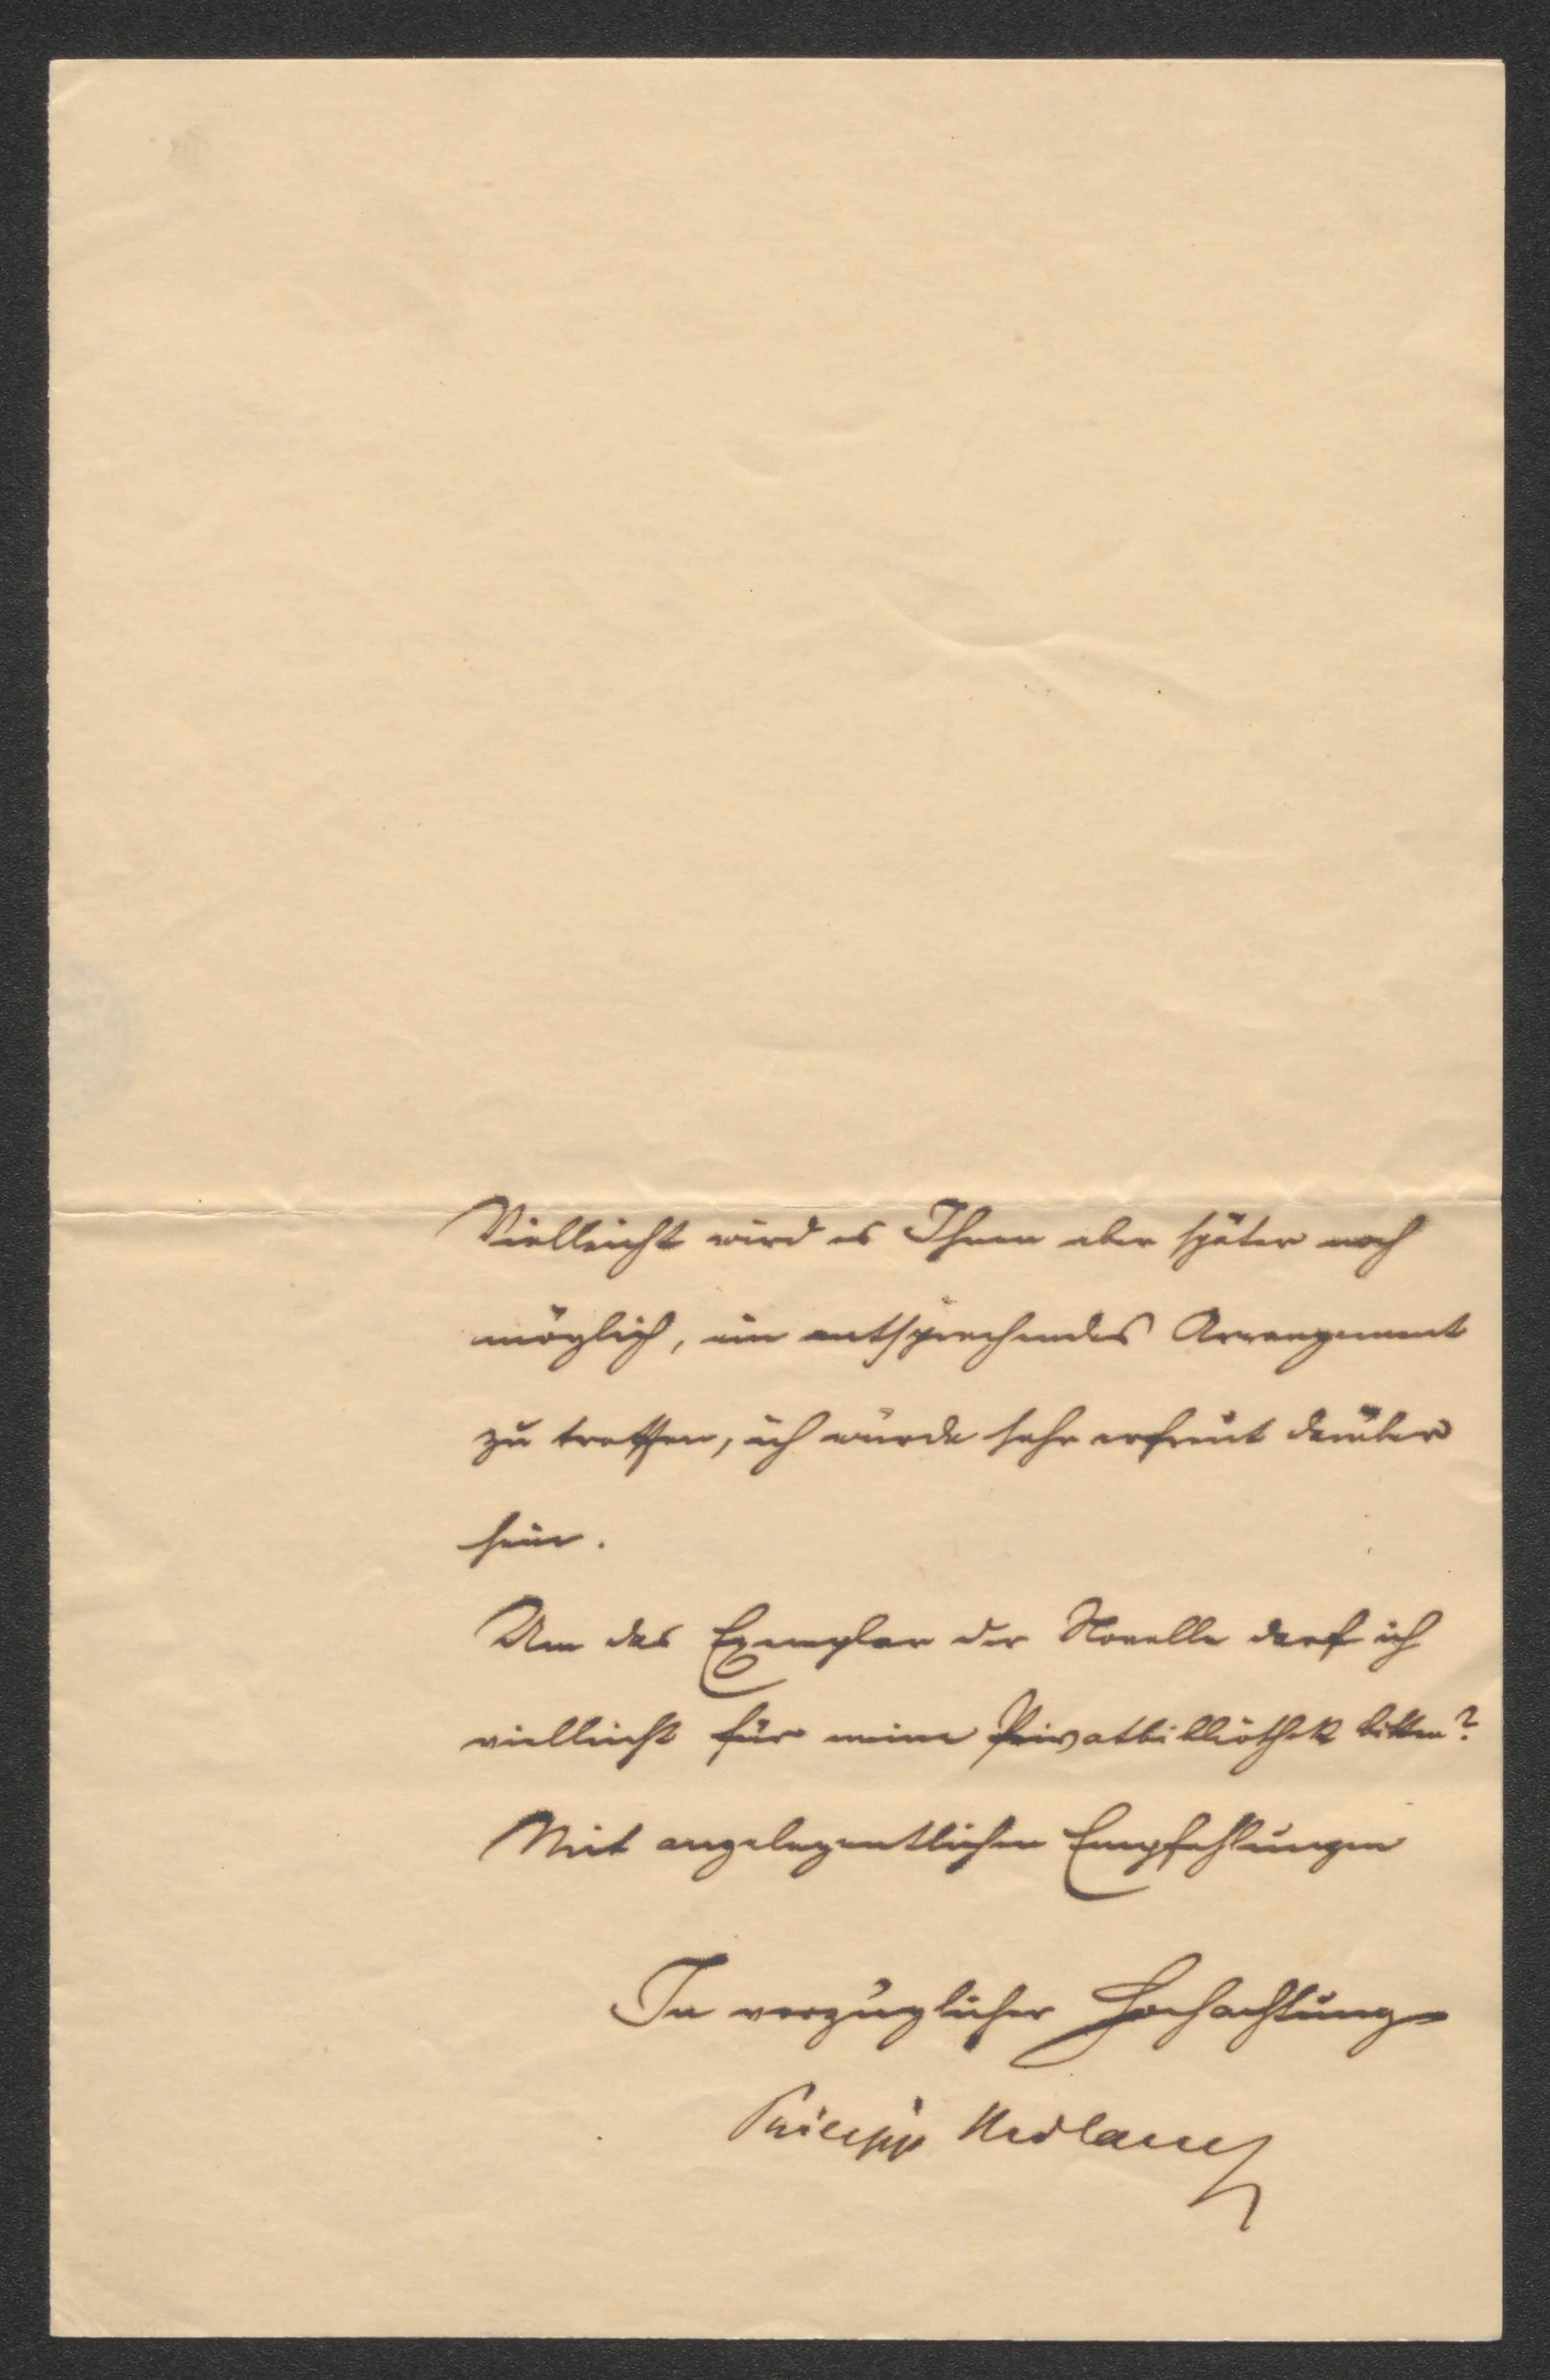 Vielleicht wird es Ihnen aber später noch
möglich, ein entsprechendes Arrangement
zu treffen, ich würde sehr erfreut darüber
sein.
Um das Exemplar der Novelle darf ich
vielleicht für meine Privatbibliothek bitten?
Mit angelegentlichen Empfehlungen
In vorzüglicher Hochachtung
Philipp